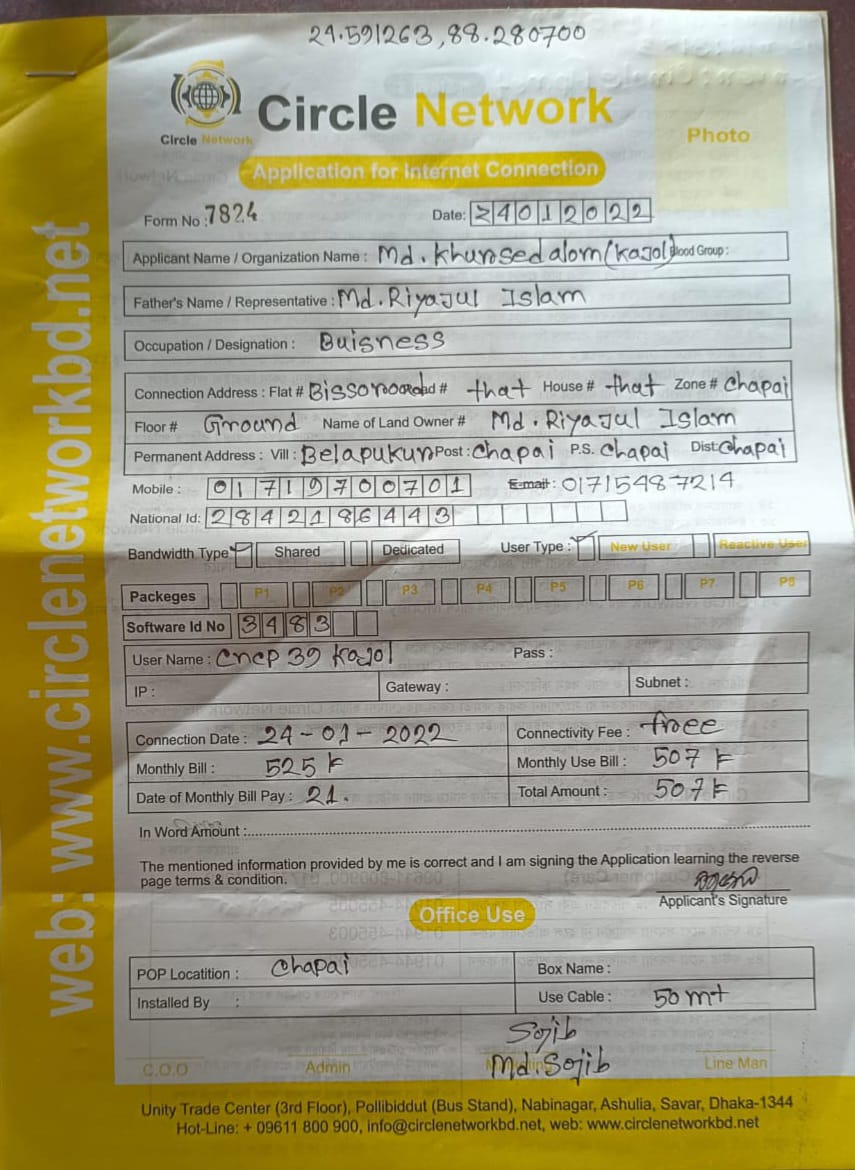 24.591263,88.280700
Circle Network
Circle Network
Photo
Application for Internet Connection
Form No : 7824
Date: 24012022
Applicant Name / Organization Name : Md. Khunsed alom (Kajol) Blood Group :
Father's Name / Representative : Md. Riyajul Islam
Occupation / Designation : Buisness
Connection Address : Flat # Road # that House # that Zone # Chapai
Floor # Ground Name of Land Owner # Md. Riyajul Islam
Permanent Address : Vill : Belapukur Post : Chapai P.S. Chapai Dist: Chapai
Mobile : 01719700701 E-mail : 01715487214
National Id: 2842186443
Bandwidth Type Shared Dedicated User Type : New User Reactive User
Packeges P1 P2 P3 P4 P5 P6 P7 P8
Software Id No 3483
User Name : Cncp 39 Kajol Pass :
IP : Gateway : Subnet :
Connection Date : 24-01-2022 Connectivity Fee : free
Monthly Bill : 525 Monthly Use Bill : 507
Date of Monthly Bill Pay : 21. Total Amount : 507
In Word Amount :
The mentioned information provided by me is correct and I am signing the Application learning the reverse
page terms & condition.
Applicant's Signature
Office Use
POP Locatition : Chapai Box Name :
Installed By : Use Cable : 50 mt
Sojib
C.O.O Admin Md. Sojib Line Man
Unity Trade Center (3rd Floor), Pollibiddut (Bus Stand), Nabinagar, Ashulia, Savar, Dhaka-1344
Hot-Line: + 09611 800 900, info@circlenetworkbd.net, web: www.circlenetworkbd.net
web: www.circlenetworkbd.net